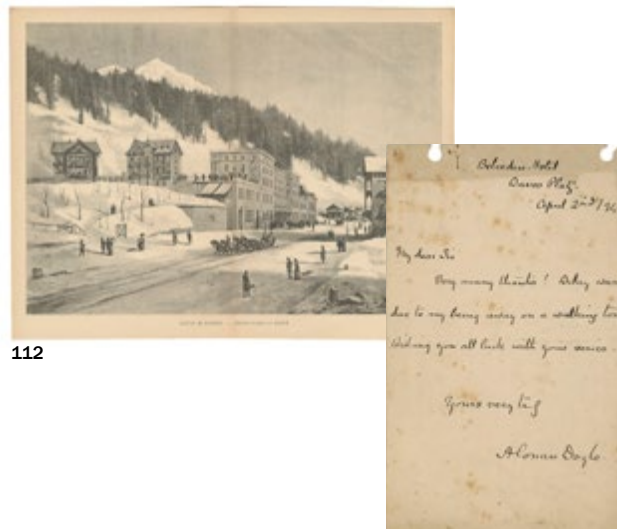 112
Belvedere Hotel
Davos Platz.
April 2nd/94
My dear Sir
Very many thanks! Delay was
due to my being away on a walking tour
Wishing you all luck with your series.
Yours very truly
A Conan Doyle.